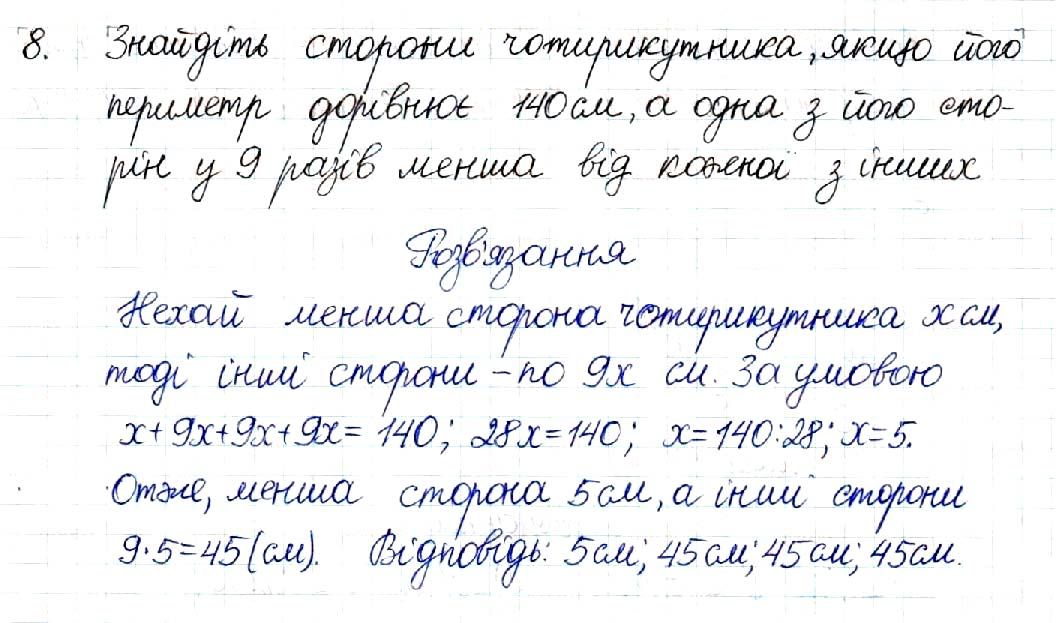 8. Знайдіть сторони чотирикутника, якщо його
периметр дорівнює 140 см, а одна з його сто-
рін у 9 разів менша від кожної з інших
Розв'язання
Нехай менша сторона чотирикутника x см,
тоді інші сторони – по 9x см. За умовою
x+9x+9x+9x=140; 28x=140; x=140:28; x=5.
Отже, менша сторона 5 см, а інші сторони
9·5=45(см). Відповідь: 5 см; 45 см; 45 см; 45 см.